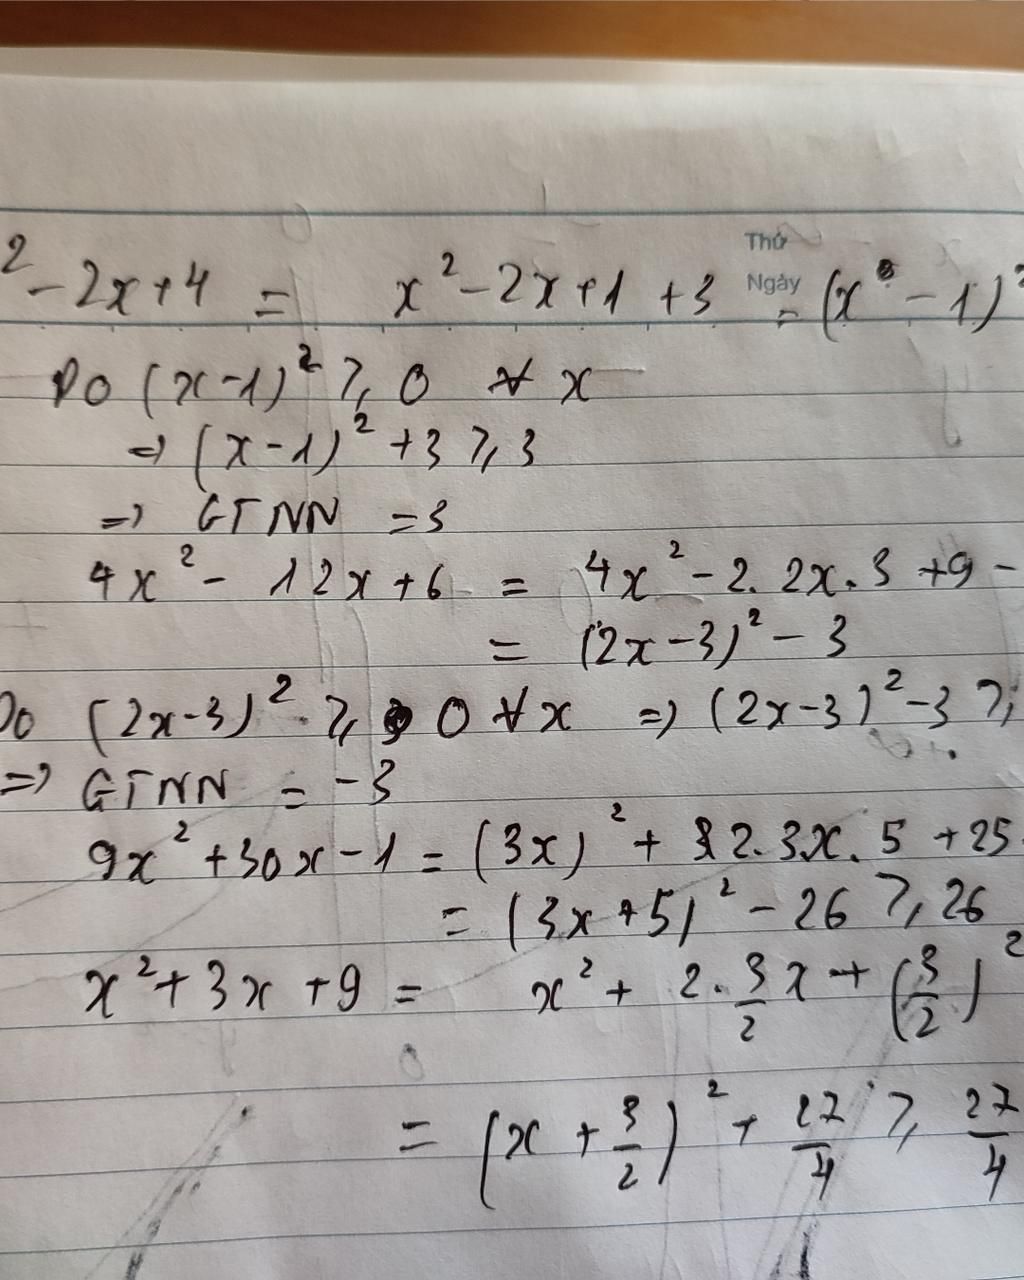 Thứ
Ngày
² - 2x + 4 = x² - 2x + 1 + 3 = (x - 1)²
Do (x - 1)² ≥ 0 ∀ x
⇒ (x - 1)² + 3 ≥ 3
⇒ GTNN = 3
4x² - 12x + 6 = 4x² - 2. 2x . 3 + 9 -
= (2x - 3)² - 3
Do (2x - 3)² ≥ 0 ∀ x ⇒ (2x - 3)² - 3 ≥
⇒ GTNN = -3
9x² + 30x - 1 = (3x)² + 2. 3x. 5 + 25
= (3x + 5)² - 26 ≥ 26
x² + 3x + 9 = x² + 2. 3/2 x + (3/2)²
= (x + 3/2)² + 27/4 ≥ 27/4